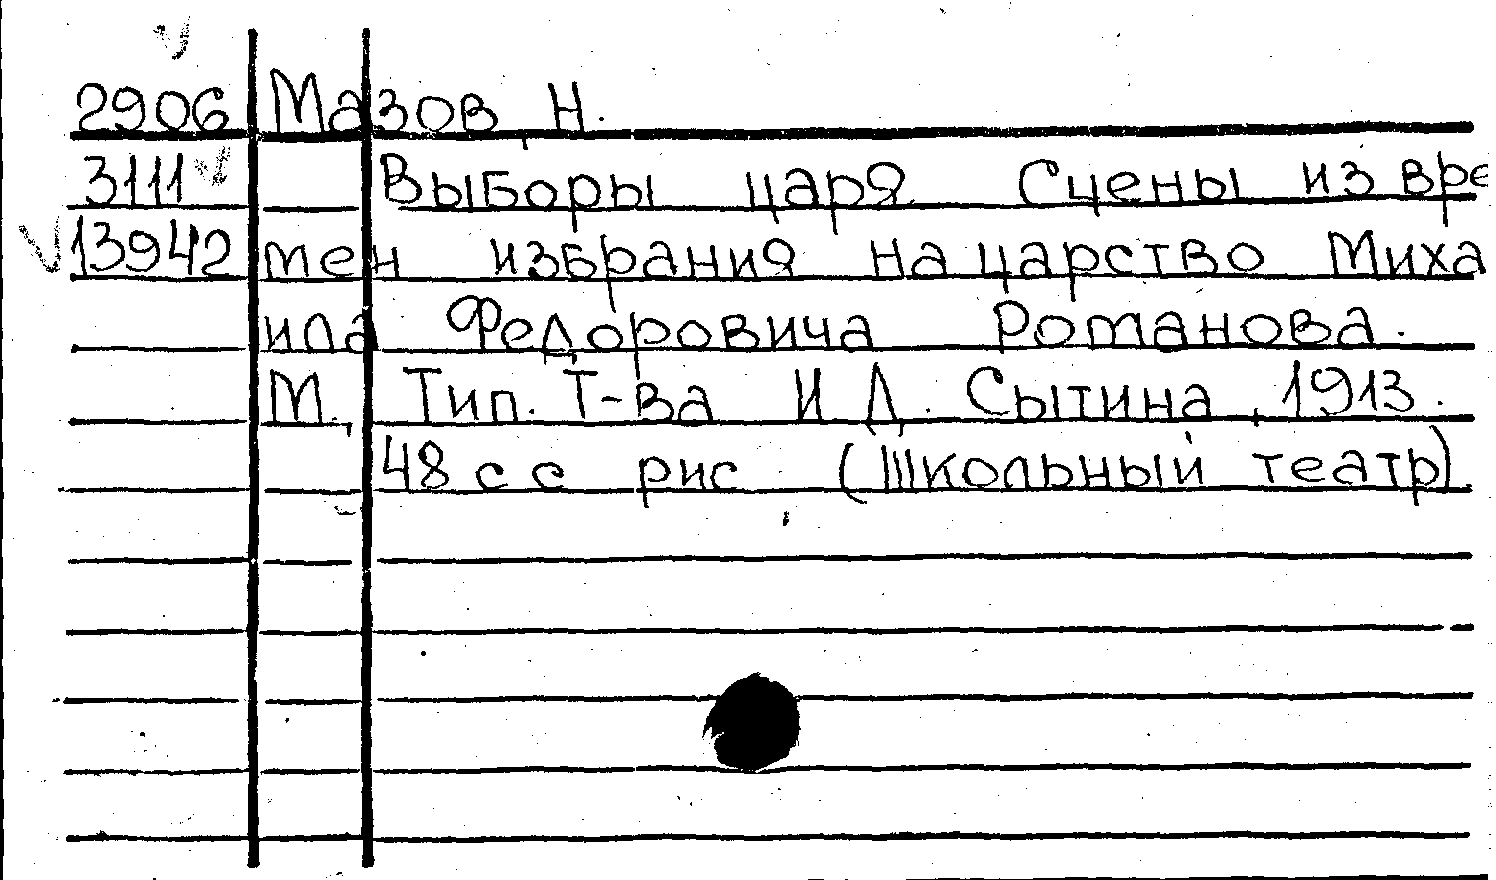 2906 Мазов Н.
3111 Выборы царя. Сцены из вре
13942 мен избрания на царство Миха
ила Федоровича Романова.
М., Тип. Т-ва И Д. Сытина, 1913.
48 с с рис (Школьный театр).